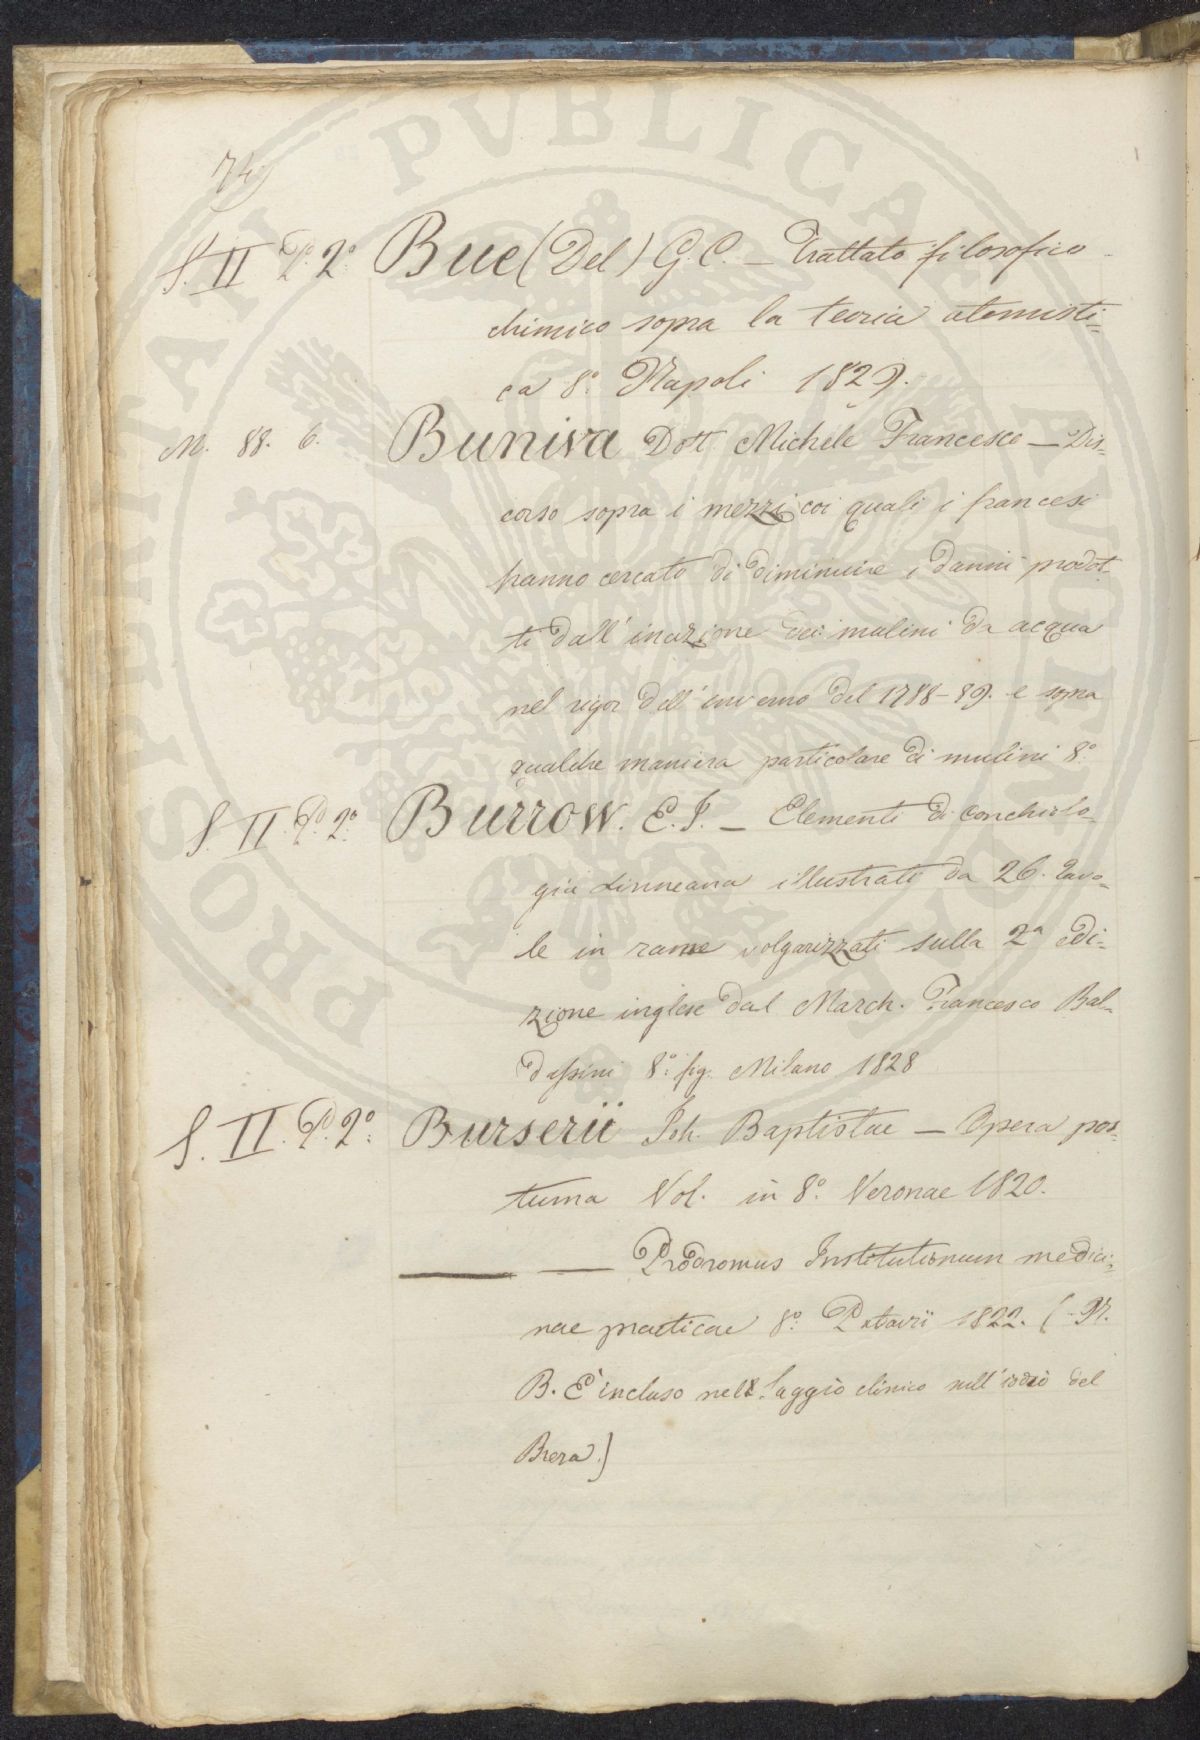 74
S. II P.º 2º Bue (Del) G. C. — Trattato filosofico
chimico sopra la teoria atomisti=
ca 8º. Napoli 1829.
M. 88. 6. Buniva Dott. Michele Francesco — Dis=
corso sopra i mezzi coi quali i francesi
hanno cercato di diminuire i danni prodot=
ti dall'inazione dei mulini da acqua
nel rigor dell'inverno del 1788-89. e sopra
qualche maniera particolare di mulini 8º.
S. II. P.º 2º. Burrow. E. J. — Elementi di conchiolo=
gia Linneana illustrati da 26. Tavo=
le in rame volgarizzati sulla 2ª edi=
zione inglese dal March. Francesco Bal=
dassini 8º. fig. Milano 1828
S. II. P.º 2º. Burserii Joh. Baptistae — Opera pos=
tuma Vol. in 8º. Veronae 1820.
——— — Prodromus Institutionum medici=
nae practicae 8º. Patavii 1822. (N.
B. È incluso nel Saggio clinico sull'iodio del
Brera.)
PROSPERITATI PVBLICAE AVGENDAE